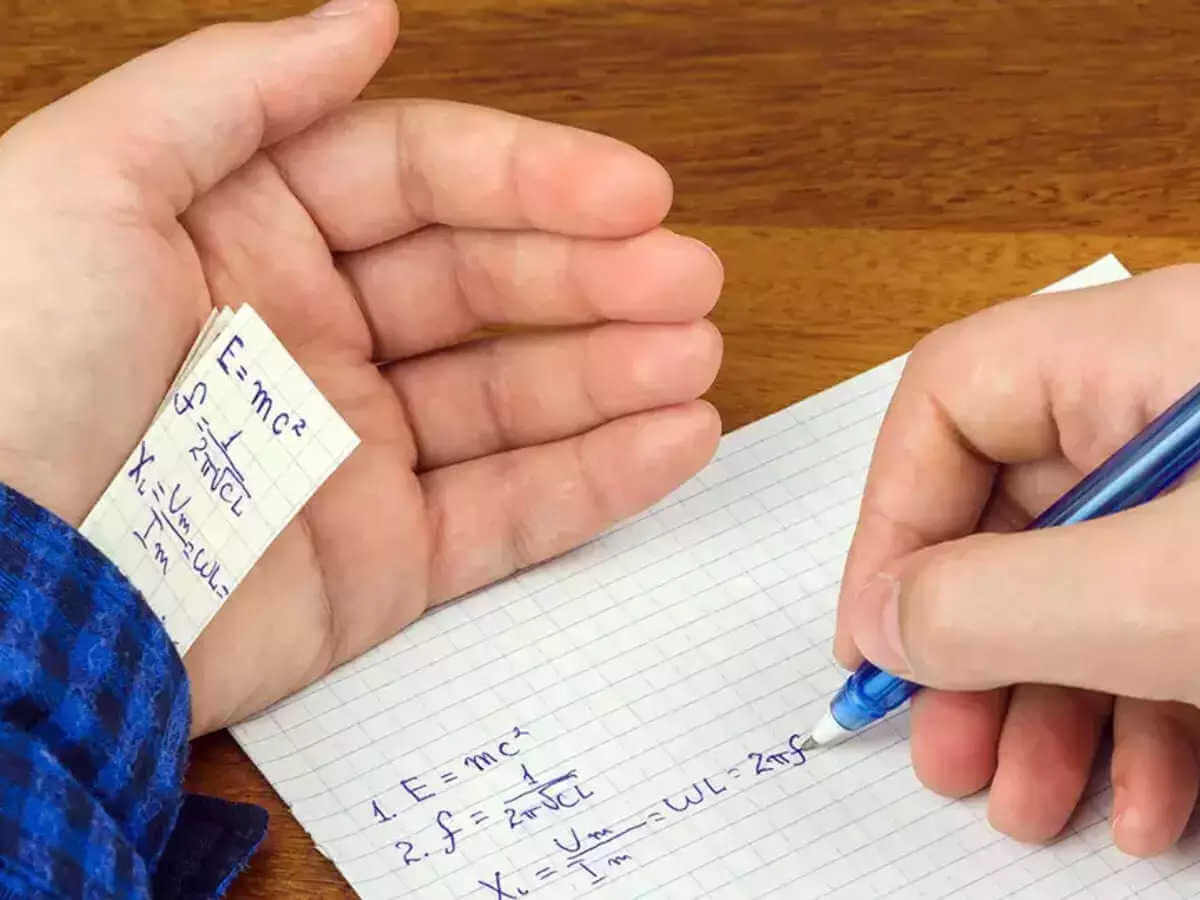 E = mc²
f = 1/2π√CL
X_L = U_m/I_m = WL =
1. E = mc²
2. f = 1/2π√CL
X_L = U_m/I_m = WL = 2πf